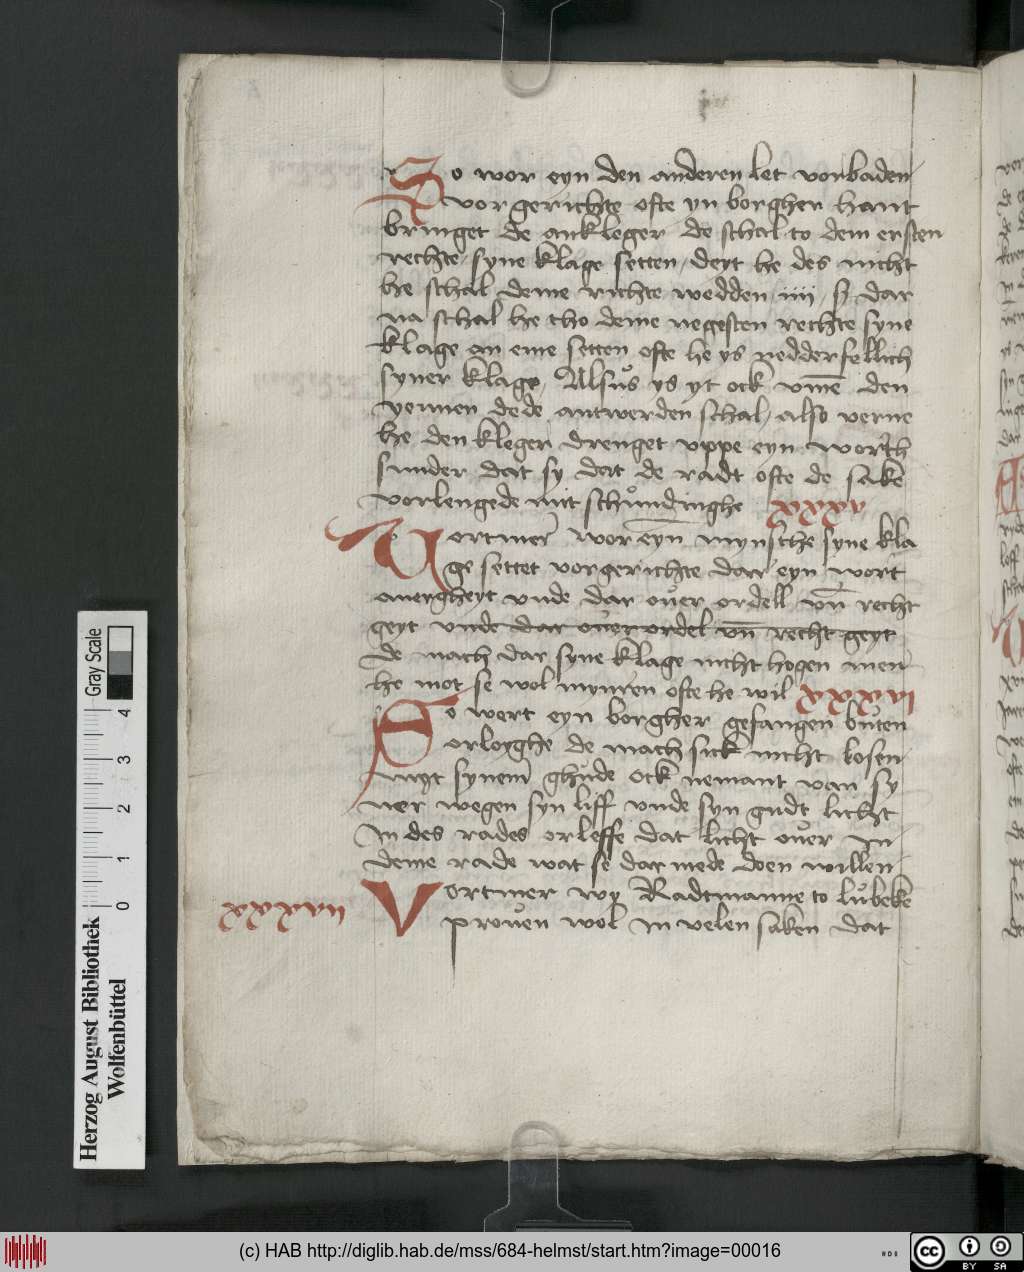 So wor eyn den anderen let vorbaden
vor gerichte ofte yn borgher hant
bringet de ankleger de schal to dem ersten
rechte syne klage setten / deyt he des nicht
he schal deme richte wedden iiii ß dar
na schal he tho deme negesten rechte syne
klage an eme setten ofte he ys nedderfellich
syner klage / Alsus ys yt ock vm̄e den
yennen dede antwerden schal / also verne
he den kleger drenget vppe eyn worth
sunder dat sy dat de radt ofte de sake
vorlengede mit schundinghe xxxv
Vortmer wor eyn mynsche syne kla
ge settet vor gerichte dar eyn wort
auergheyt vnde dar ouer ordell vn̄ recht
geyt vnde dar ouer ordel vn̄ recht geyt
de mach dar syne klage nicht hogen men
he mot se wol mynren ofte he wil xxxvi
So wert eyn borgher gefangen buten
orloyghe de mach sick nicht losen
myt synem ghude ock nemant van sy
ner wegen syn liff vnde syn gudt licht
in des rades orleffe dat licht ouer in
deme rade wat se dar mede doen willen
xxxvii Vortmer wy Radtmanne to lubeke
prouen wol in velen saken dat
Herzog August Bibliothek
Wolfenbüttel
Gray Scale
0 1 2 3 4
(c) HAB http://diglib.hab.de/mss/684-helmst/start.htm?image=00016
cc BY SA